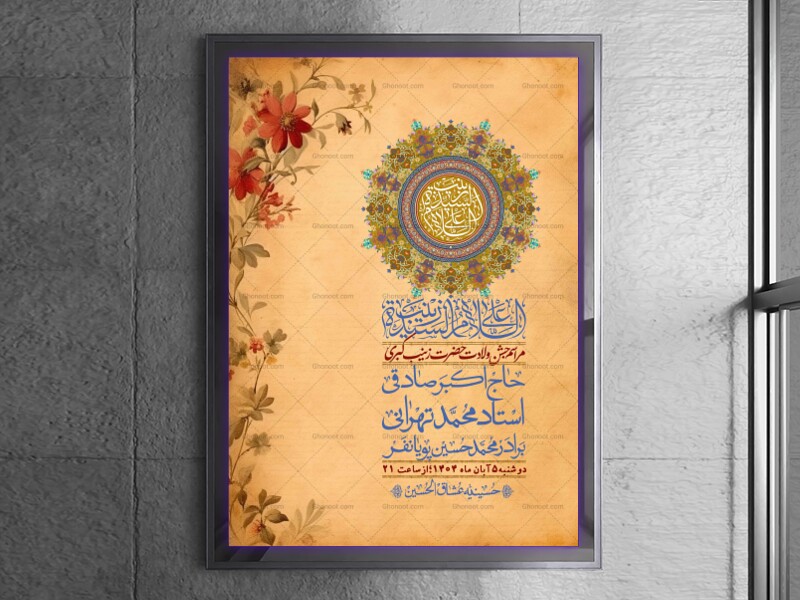 السلام علی السیدة زینب
السلام علی السیدة زینب
مراسم جشن ولادت حضرت زینب کبری
حاج اکبر صادقی
استاد محمد تهرانی
برادر محمدحسین پویانفر
دوشنبه ۵ آبان ماه ۱۴۰۴؛ از ساعت ۲۱
حسینیه عشاق الحسین
Ghonoot.com